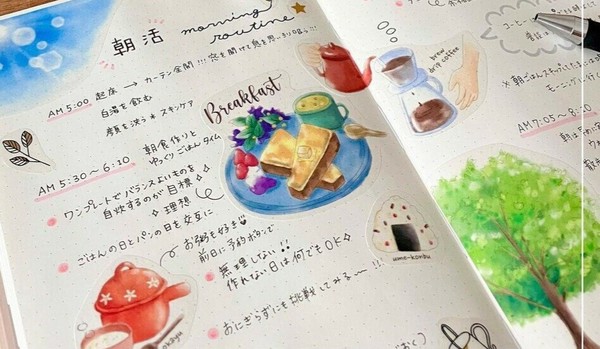 朝活
morning routine
AM 5:00 起床 → カーテン全開!!! 窓を開けて息を思いっきり吸う!!
白湯を飲む
顔を洗う * スキンケア
朝食作りと
ゆっくりごはんタイム
AM 5:30〜6:10
ワンプレートでバランスよいものを
自炊するのが目標
理想
ごはんの日とパンの日を交互に
お粥も好き
前日に予約ボタンで
無理しない!!
作れない日は何でもOK
おにぎらずにも挑戦してみる〜!!!
Breakfast
okayu
ume-konbu
brew
drip coffee
コーヒー
※朝ごはんをカフェ
モーニングに行く
AM 7:05〜8:10
朝は